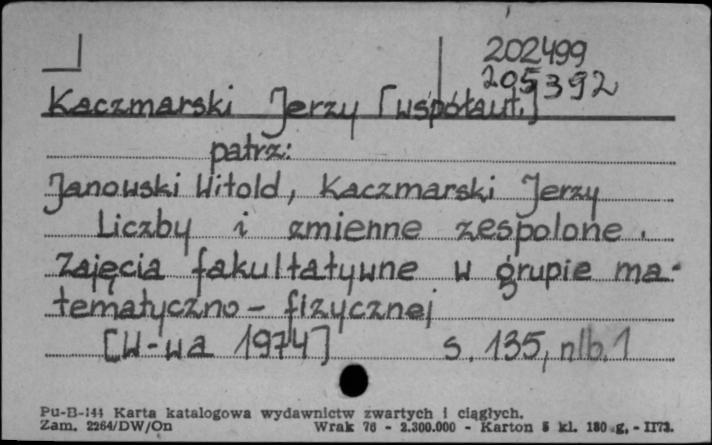 202499
205392
Kaczmarski Jerzy [współaut.]
patrz:
Janowski Witold, Kaczmarski Jerzy
Liczby i zmienne zespolone.
Zajęcia fakultatywne w grupie ma-
tematyczno - fizycznej
[W-wa 1974] s. 135, nlb. 1
Pu-B-144 Karta katalogowa wydawnictw zwartych i ciągłych.
Zam. 2264/DW/On Wrak 76 - 2.300.000 - Karton 5 kl. 180 g. - II73.